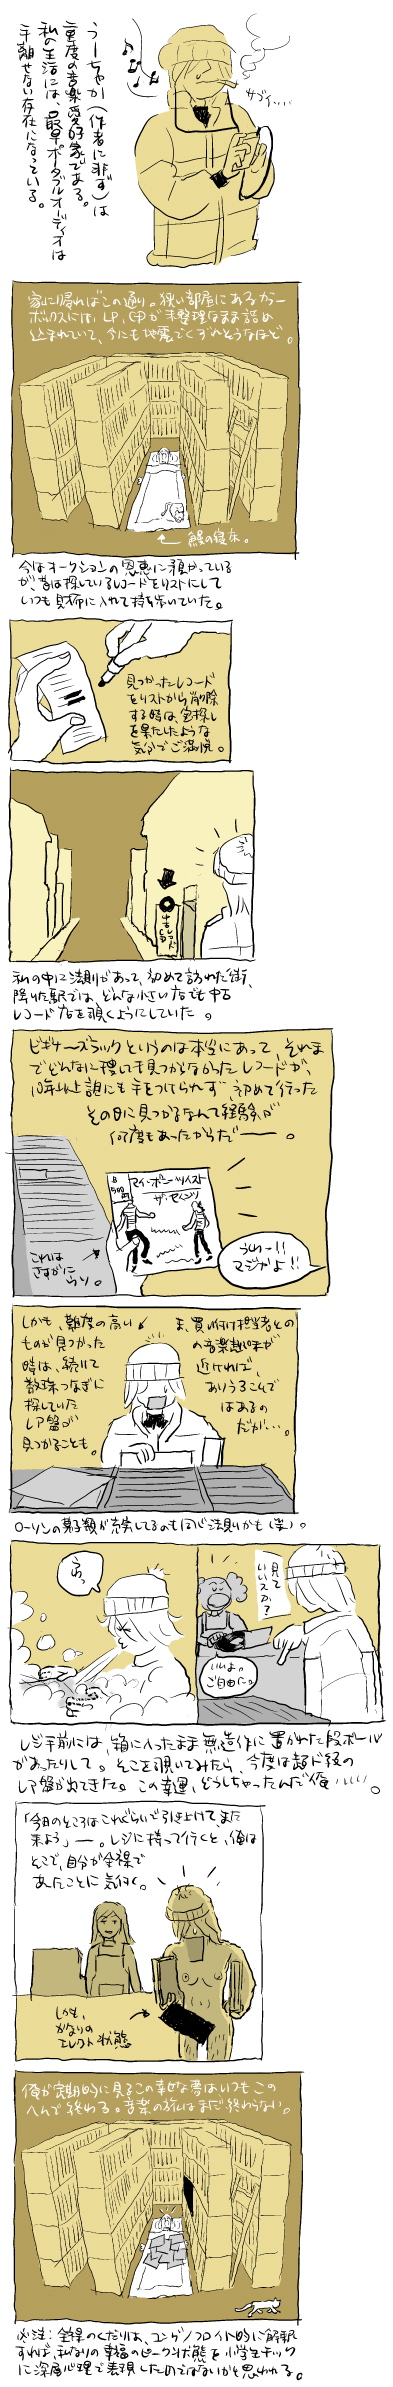 うーちゃか(作者に非ず)は
重度の音楽愛好家である。
私の生活には、最早ポータブルオーディオは
手離せない存在になっている。
サブイ・・・・
家に帰ればこの通り。狭い部屋にあるカラー
ボックスには、LP、CDが未整理なまま詰め
込まれていて、今にも地震でくずれそうなほど。
鰻の寝床。
今はオークションの恩恵に預かっている
が、昔は探しているレコードをリストにして
いつも財布に入れて持ち歩いていた。
見つかったレコード
をリストから削除
する時は、宝探し
を果たしたような
気分でご満悦。
中古レコード
CD
私の中に法則があって、初めて訪れた街、
降りた駅では、どんな小さい店でも中古
レコード店を覗くようにしていた。
ビギナーズラックというのは本当にあって、それま
でどんなに捜しても見つからなかったレコードが、
10年以上誰にも手をつけられず、初めて行った
その日に見つかるなんて経験が
何度もあったからだ――。
500円
マイ・ボニー・ツイスト
ザ・セインツ
これは
さすがに
ウソ。
うわー!!
マジかよ!!
しかも、難度の高い
ものが見つかった
時は、続けて
数珠つなぎに
探していた
レア盤が
見つかることも。
ま、買い付け担当者との
の音楽趣味が
近ければ、
ありうることで
はあるの
だが・・・。
ローソンの菓子類が充実してるのも同じ法則かも(笑)。
うわっ
見て
いいスか?
いいよ。
ご自由に。
レジ手前には、箱に入ったまま無造作に置かれた段ボール
があったりして。そこを覗いてみたら、今度は超ド級の
レア盤が出てきた。この幸運、どうしちゃったんだ俺・・・・・。
「今日のところはこれぐらいで引き上げて、また
来よう」―。レジに持って行くと、俺は
そこで、自分が全裸で
あったことに気付く。
しかも、
かなりの
エレクト状態
俺が定期的に見るこの幸せな夢はいつもこの
へんで終わる。音楽の旅はまだ終わらない。
※注:全裸のくだりは、ユング/フロイト的に解釈
すれば、私なりの幸福のピーク状態を小学生チック
に深層心理で表現したのではないかと思われる。